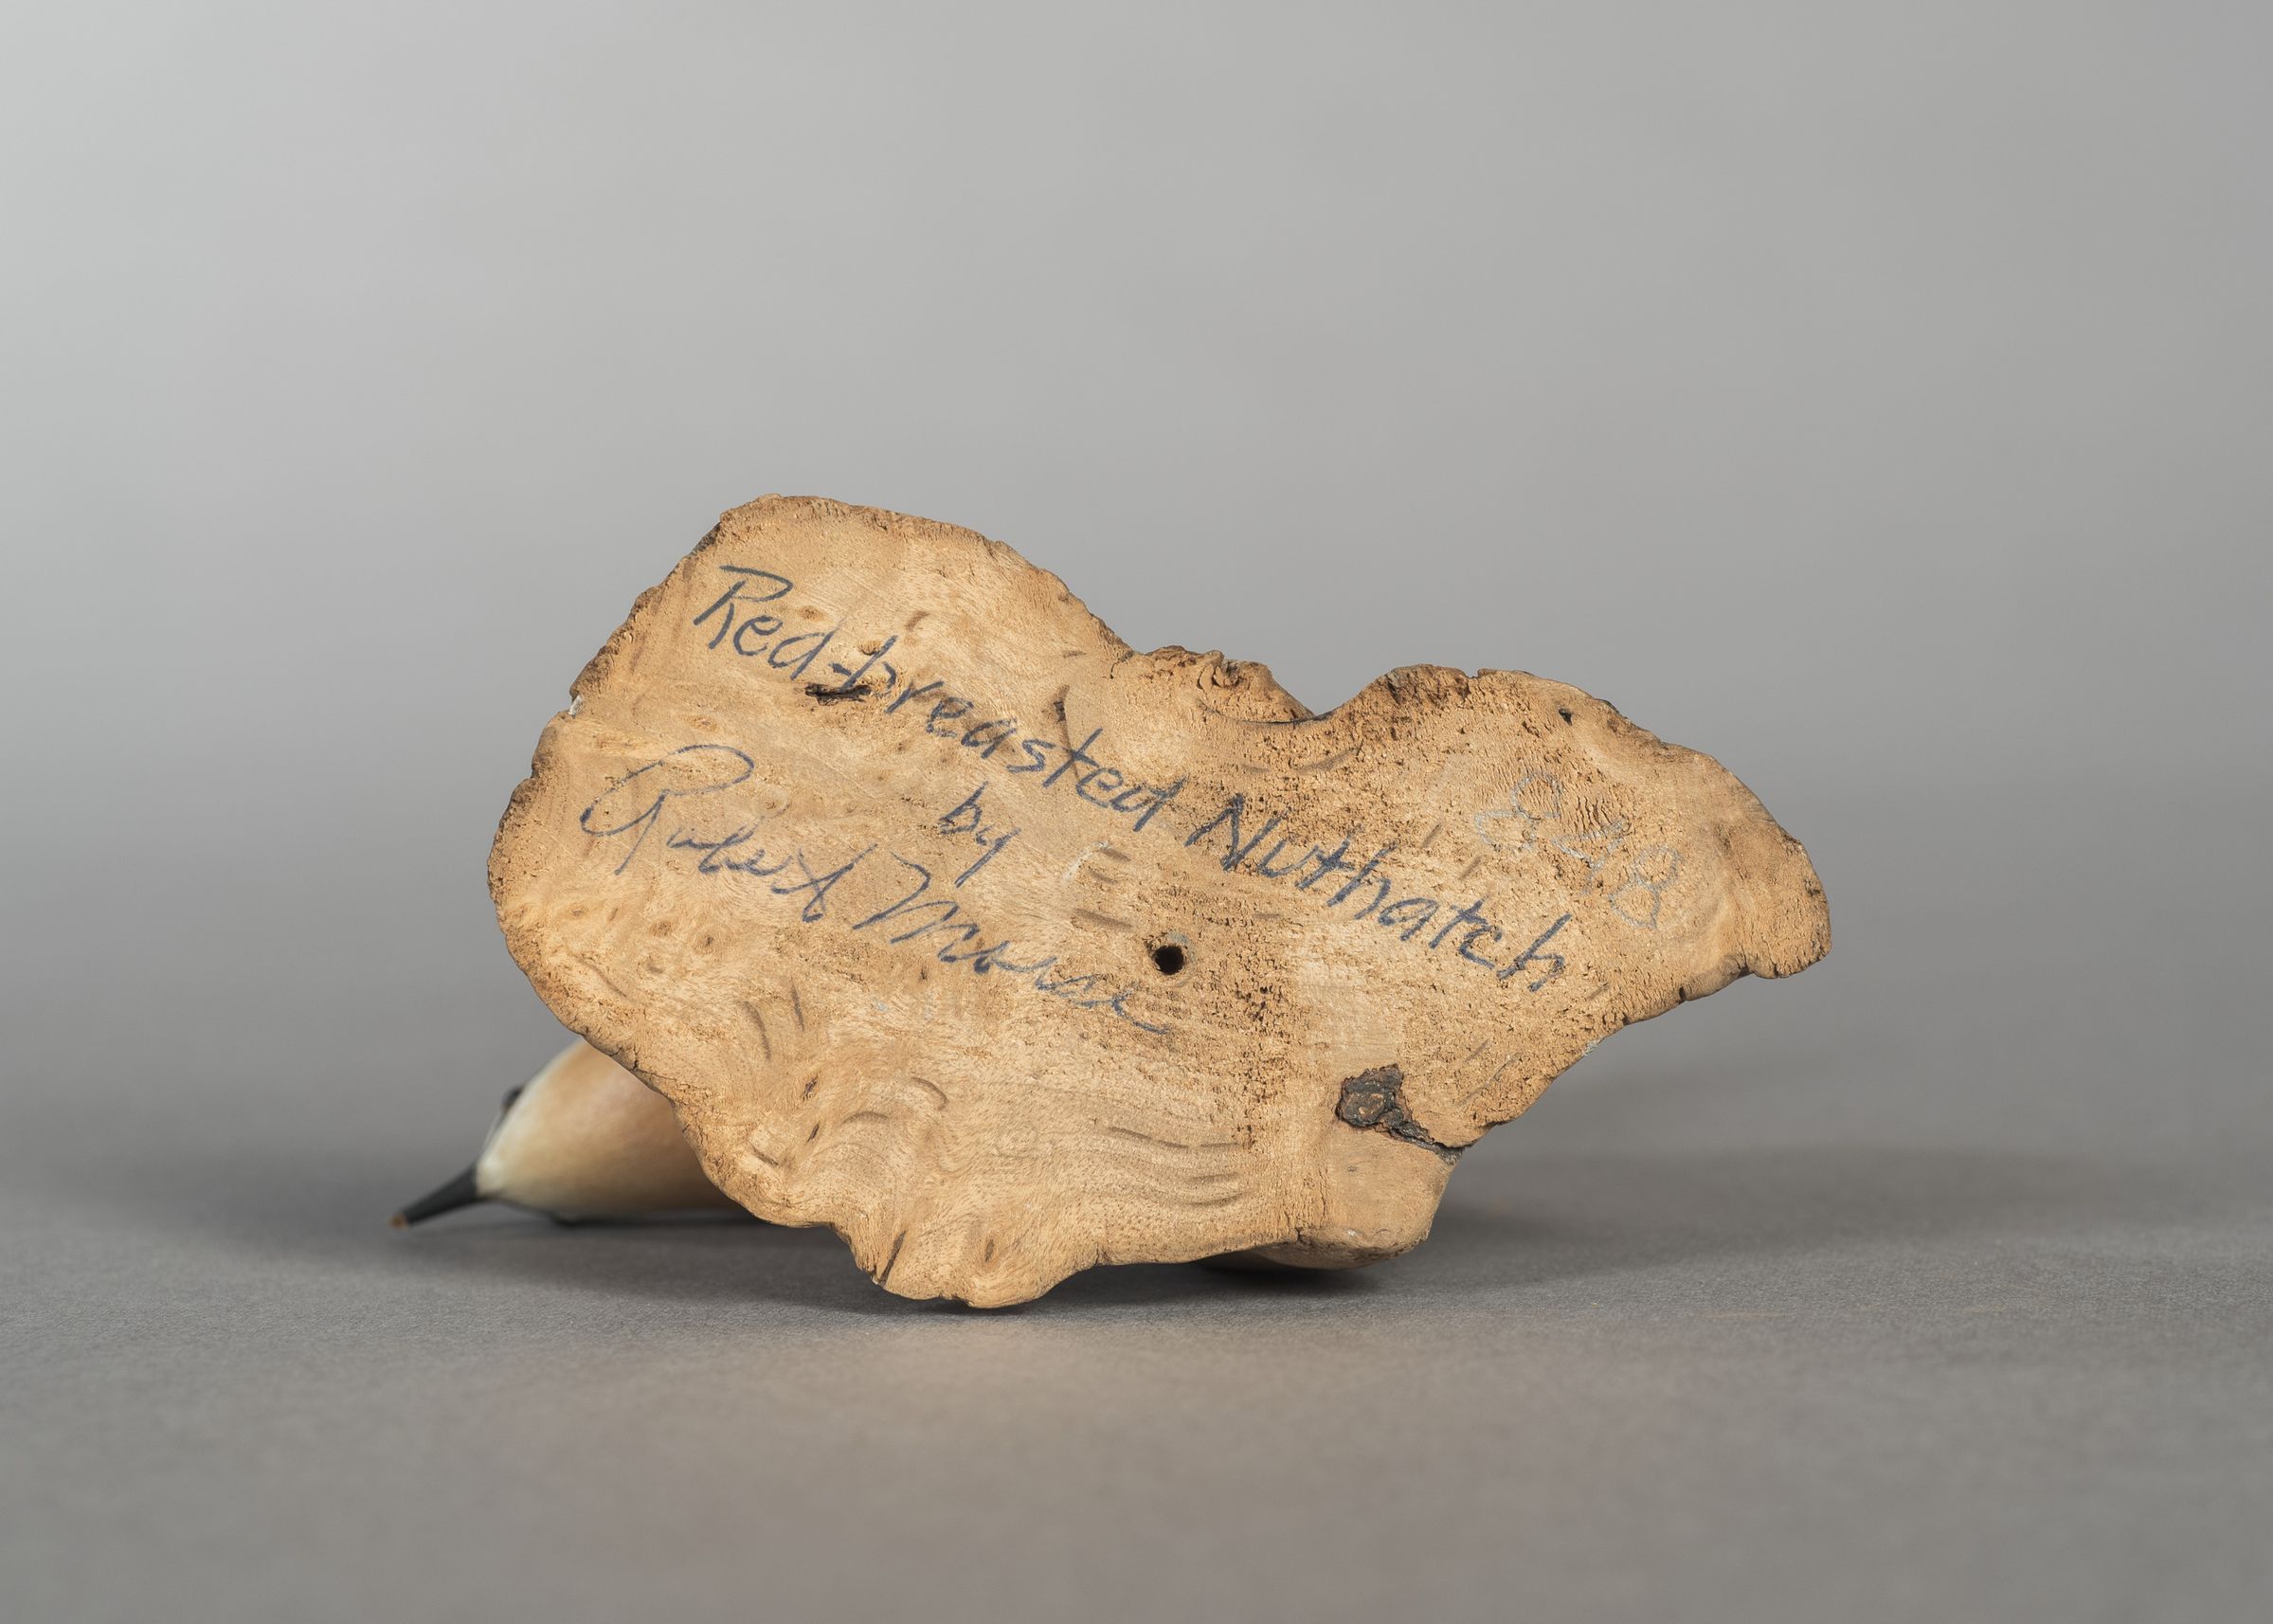 Red-breasted Nuthatch
by
Robert Morse
848